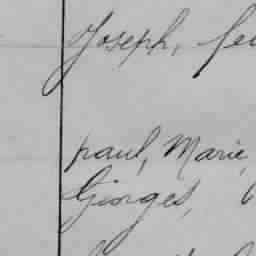 Joseph,
paul, Marie,
Giorges,